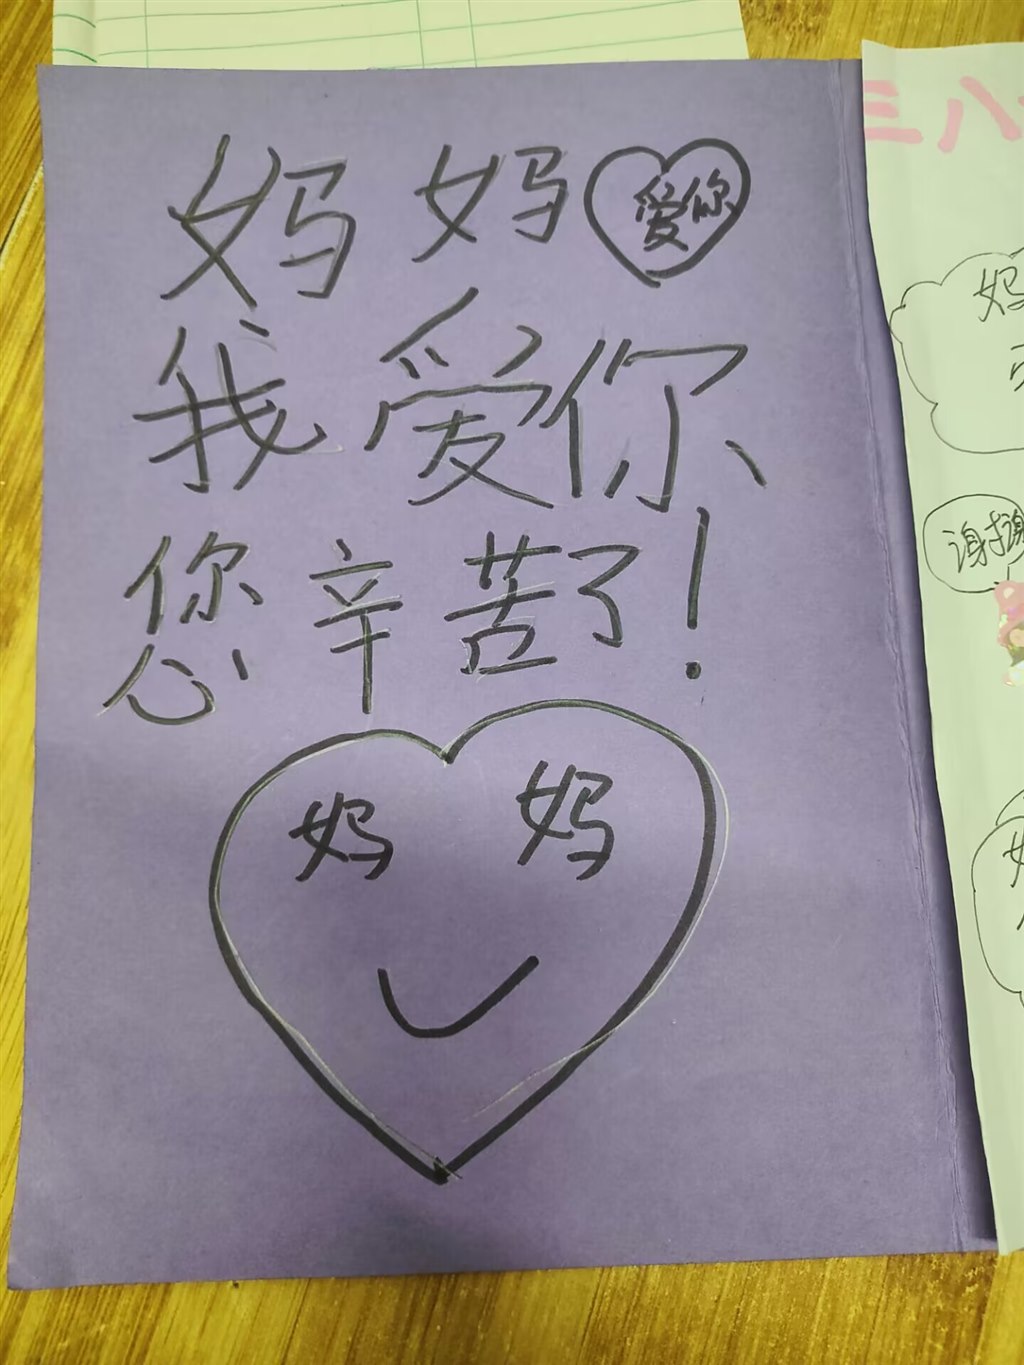 妈妈 爱你
我爱你
您辛苦了!
妈 妈
三八
妈
谢谢